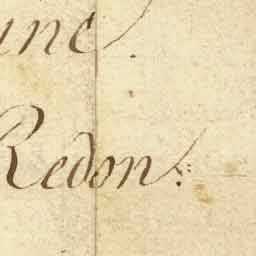 une.
Redon.